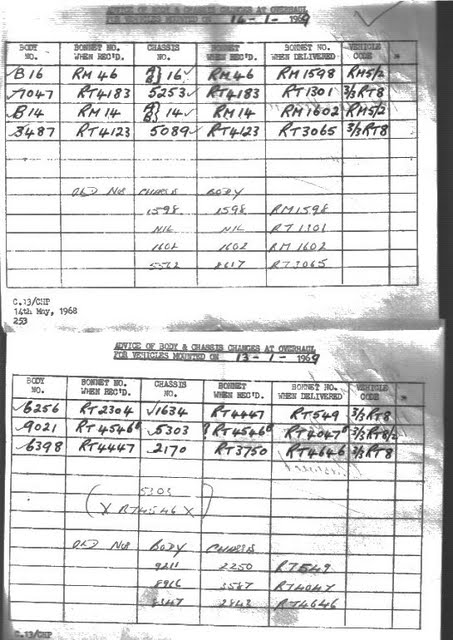 ADVICE OF BODY & CHASSIS CHANGES AT OVERHAUL
FOR VEHICLES MOUNTED ON 14-1-1969
BODY NO. BONNET NO. WHEN REC'D. CHASSIS NO. BONNET WHEN REC'D. BONNET NO. WHEN DELIVERED VEHICLE CODE
✓B16 RM46 A} B} 16✓ RM46 RM1598 RM5/2
✓7047 RT4183 5253✓ RT4183 RT1301 3/3RT8
✓B14 RM14 A} B} 14✓ RM14 RM1602 RM5/2
✓3487 RT4123 5089✓ RT4123 RT3065 3/3RT8
OLD NOS CHASSIS BODY
1598 1598 RM1598
NIL NIL RT1301
1602 1602 RM1602
8617 RT3065
C.13/CHP
14th May, 1968
253
ADVICE OF BODY & CHASSIS CHANGES AT OVERHAUL
FOR VEHICLES MOUNTED ON 13-1-1969
BODY NO. BONNET NO. WHEN REC'D. CHASSIS NO. BONNET WHEN REC'D. BONNET NO. WHEN DELIVERED VEHICLE CODE
✓6256 RT2304 ✓1634 RT4447 RT549 3/3RT8
✓9021 RT4546 ✓5303 ?RT4546 RT4047 3/3RT8/2
✓6398 RT4447 ✓2170 RT3750 RT4646 3/3RT8
5303
(X RT4546 X)
OLD NOS BODY CHASSIS
2250 RT549
8916 3587 RT4047
2843 RT4646
C.13/CHP